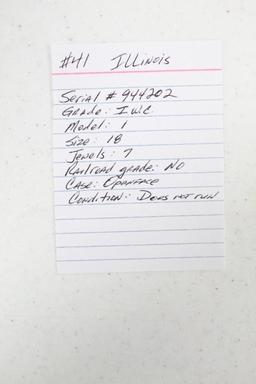 #41 Illinois
Serial # 944202
Grade: I.W.C
Model: 1
Size: 18
Jewels: 7
Railroad grade: No
Case: Openface
Condition: Does not run